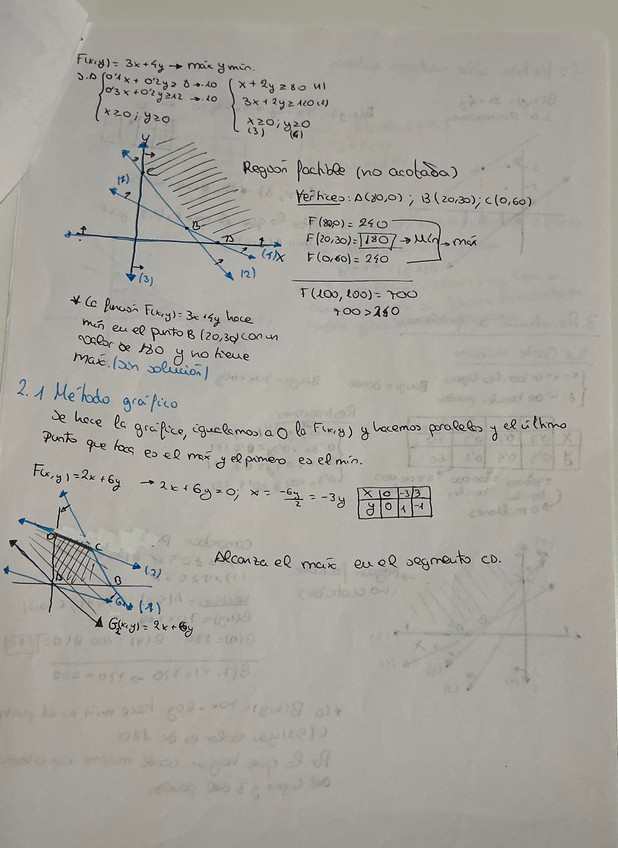 F(x,y) = 3x+4y → máx y mín.
s.a { 0'1x + 0'2y ≥ 8 → ·10 { x + 2y ≥ 80 (1)
0'3x + 0'2y ≥ 12 → ·10 3x + 2y ≥ 120 (2)
x≥0 ; y≥0 x≥0 ; y≥0
(3)
Región factible (no acotada)
Vértices: A(80,0) ; B(20,30) ; C(0,60)
F(80,0) = 240
F(20,30) = 180 → Mín → máx
F(0,60) = 240
F(100,100) = 700
700 > 240
Y
C
(1)
B
A
X
(2)
(3)
* La función F(x,y) = 3x+4y hace
mín en el punto B (20,30) con un
valor de 180 y no tiene
max. (sin solución)
2.1 Método gráfico
Se hace la gráfica, igualamos a 0 la F(x,y) y hacemos paralelas y el último
punto que toca es el max y el primero es el mín.
F(x,y) = 2x+6y → 2x+6y=0; x = -6y/2 = -3y
X 0 -3 3
y 0 1 -1
D
C
(2)
A
B
(1)
Alcanza el max en el segmento CD.